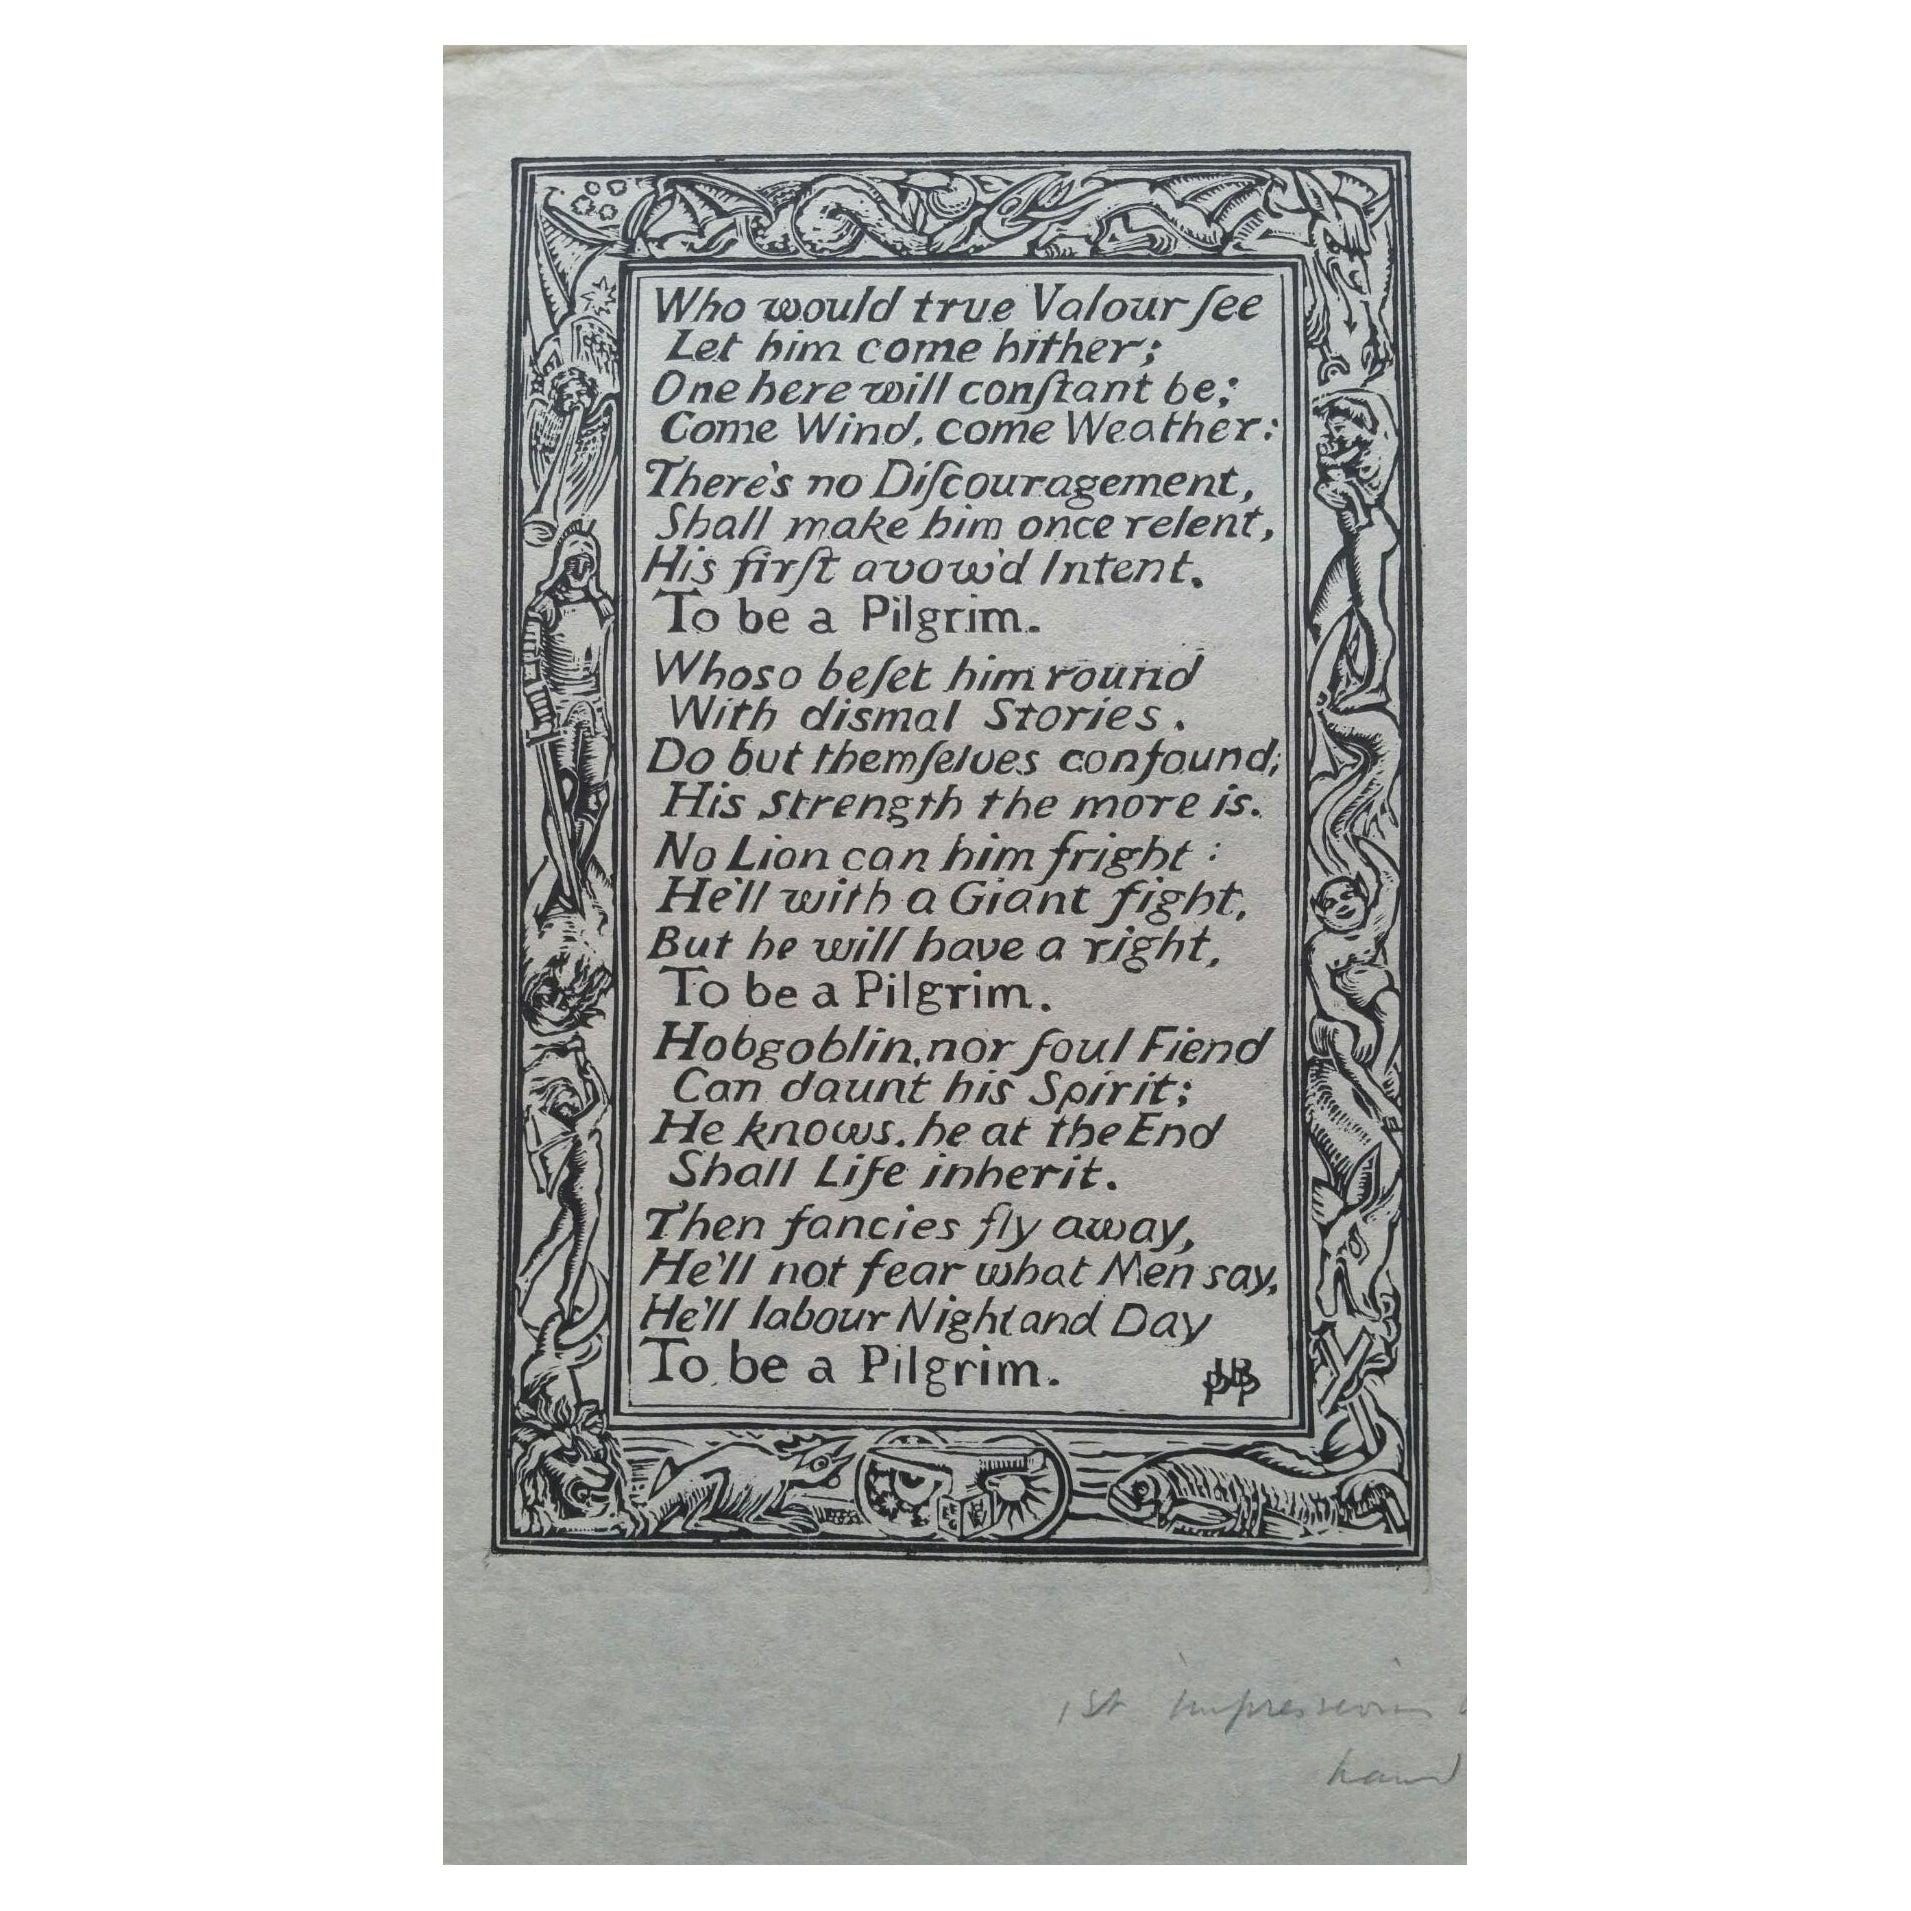 Who would true Valour ſee
Let him come hither;
One here will conſtant be;
Come Wind, come Weather:
There's no Diſcouragement,
Shall make him once relent,
His firſt avow'd Intent.
To be a Pilgrim.
Whoso beſet him round
With dismal Stories.
Do but themſelves confound;
His strength the more is.
No Lion can him fright:
He'll with a Giant fight,
But he will have a right,
To be a Pilgrim.
Hobgoblin, nor foul Fiend
Can daunt his Spirit;
He knows. he at the End
Shall Life inherit.
Then fancies fly away,
He'll not fear what Men say,
He'll labour Night and Day
To be a Pilgrim.
1st impression
hand